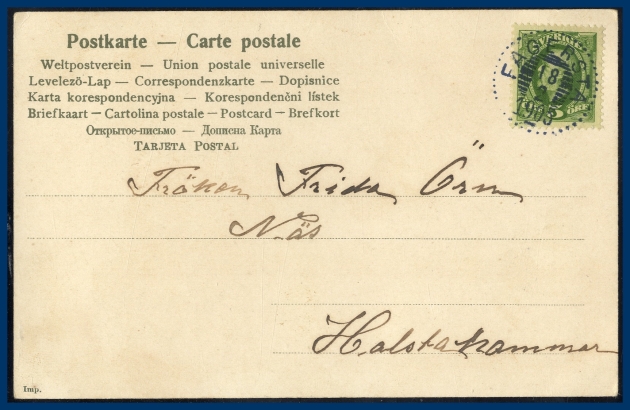 Postkarte — Carte postale
Weltpostverein — Union postale universelle
Levelezö-Lap — Correspondenzkarte — Dopisnice
Karta korespondencyjna — Korespondenčni lístek
Briefkaart — Cartolina postale — Postcard — Brefkort
Открытое-письмо — Дописна Карта
TARJETA POSTAL
FAGERSTA
18
1903
5 ÖRE
Fröken Frida Örn
Näs
Halstahammar
Imp.